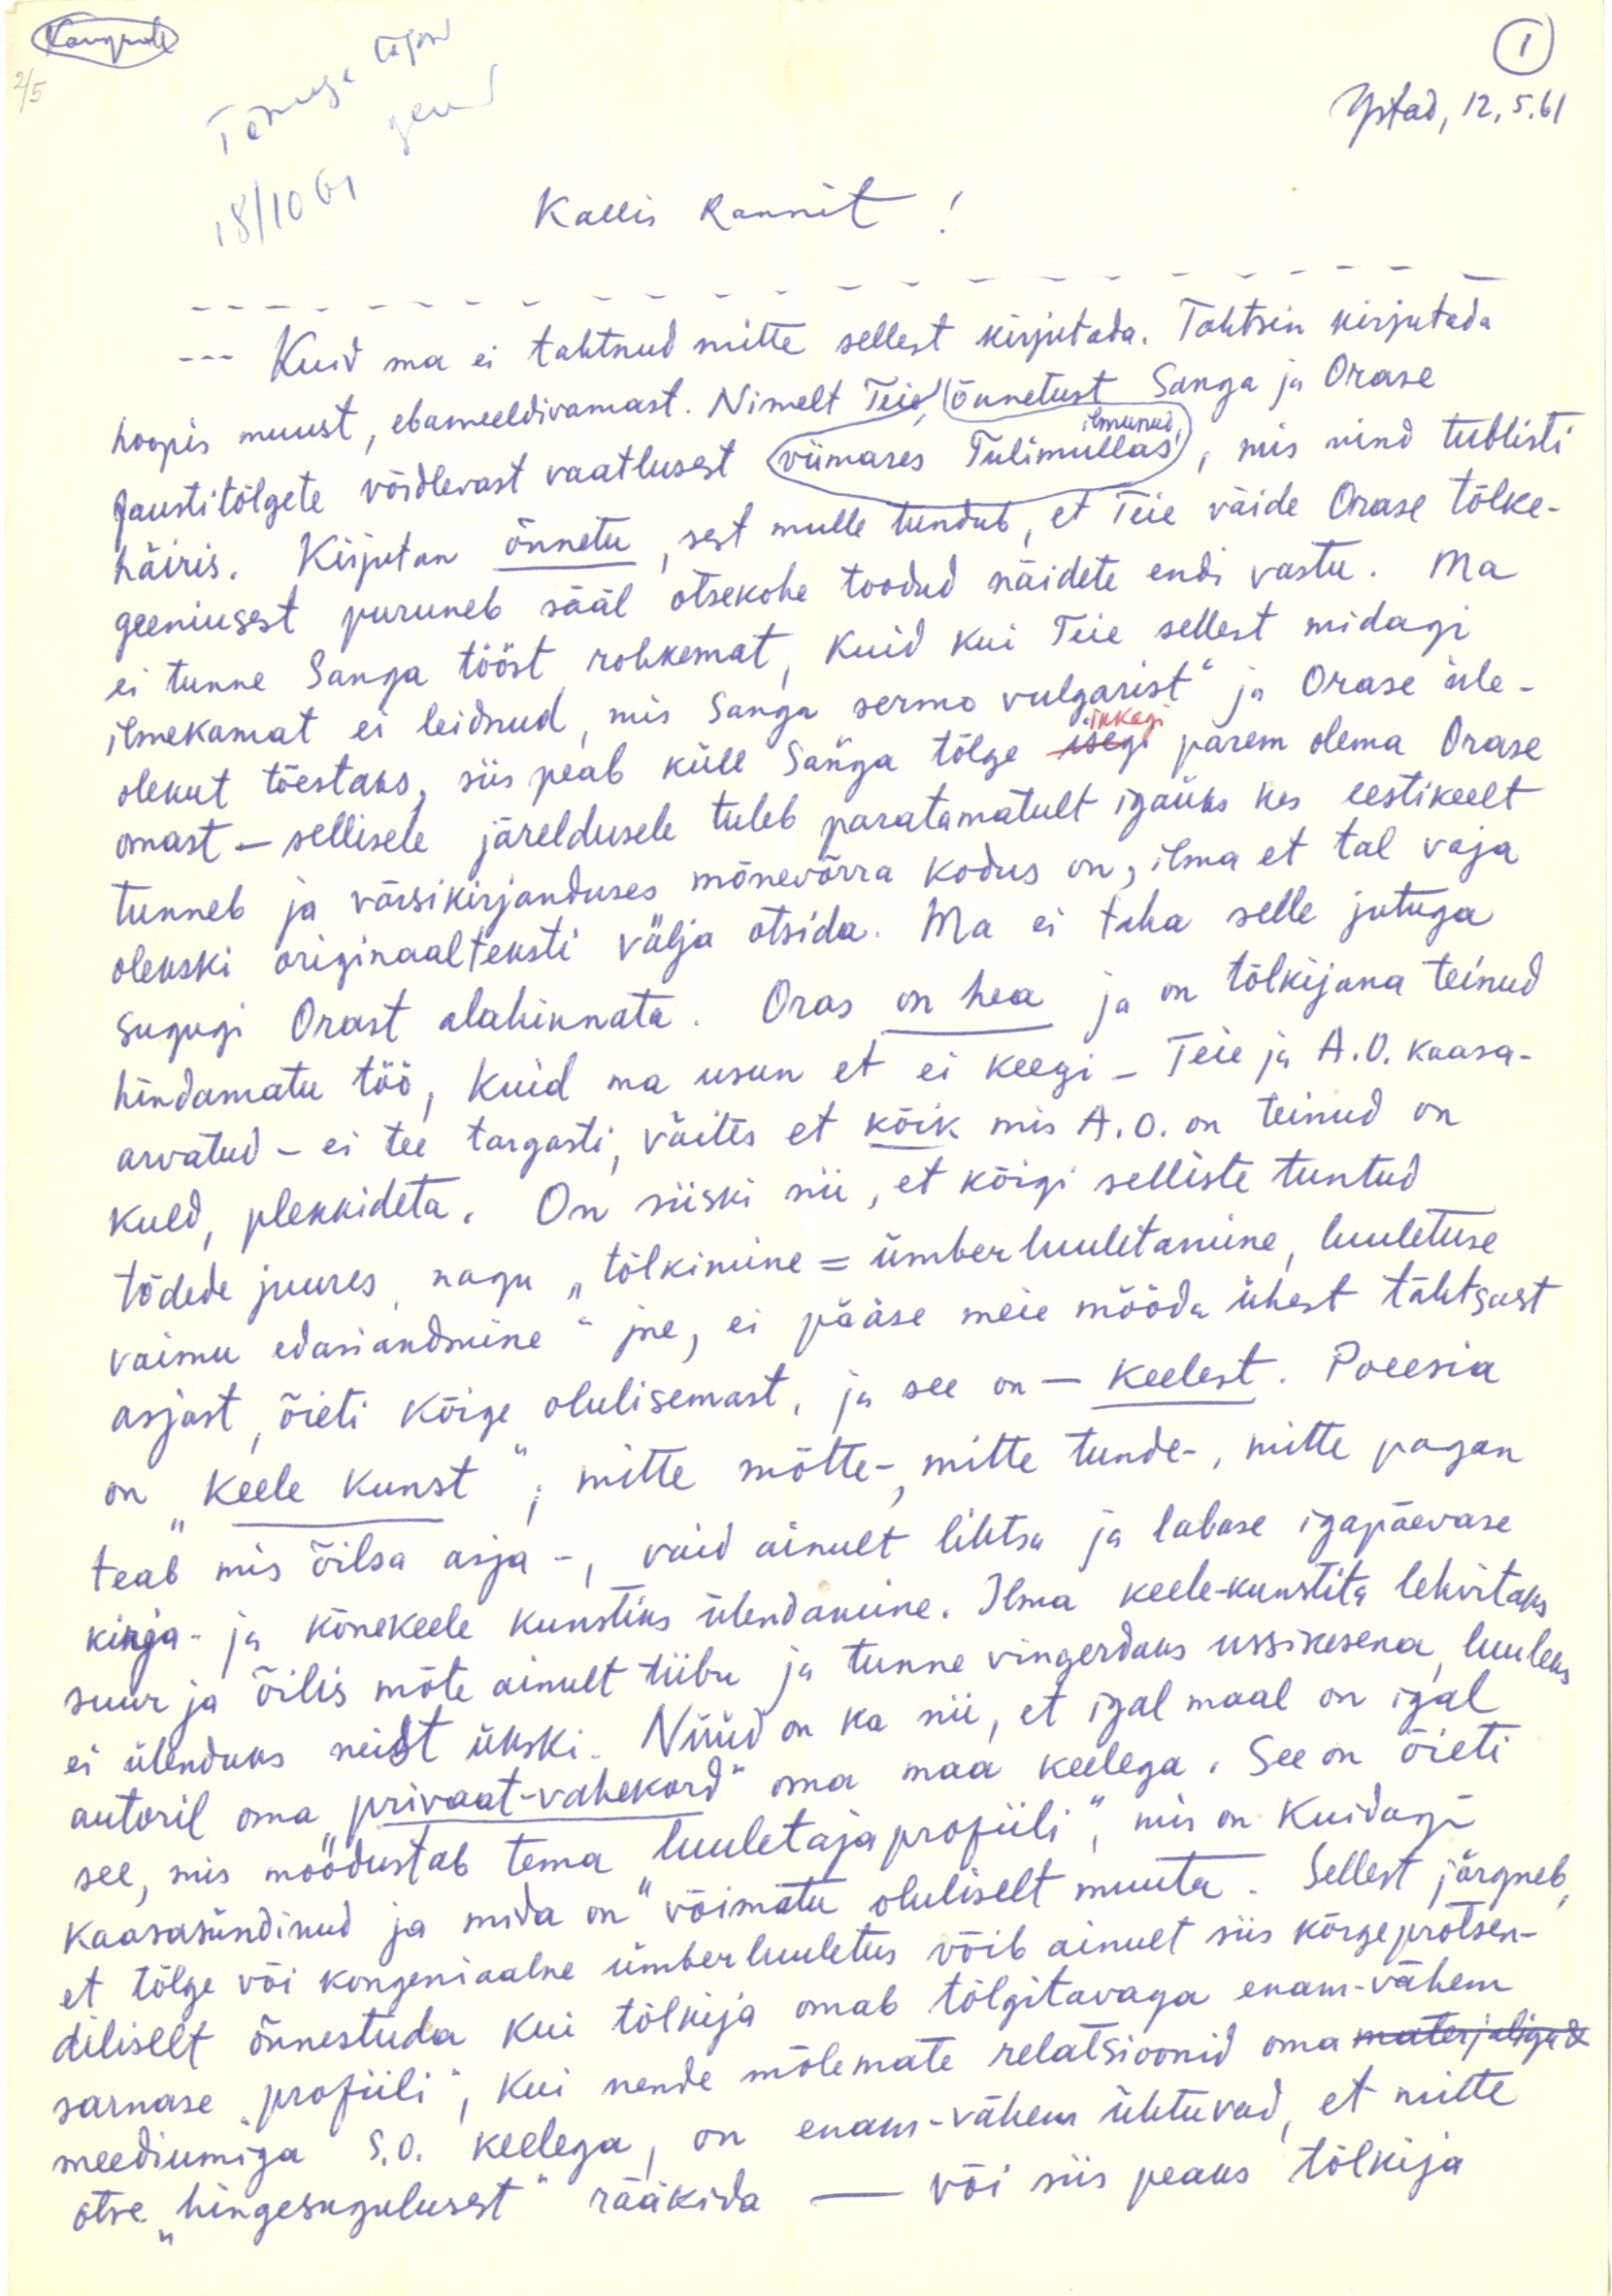 Kangrole
1
2/5
Tänuga tagasi
Ystad, 12.5.61
18/10 61
Kallis Rannit!
--- Kuid ma ei tahtnud mitte sellest kirjutada. Tahtsin kirjutada
hoopis muust, ebameeldivamast. Nimelt Teie õnnetust Sanga ja Orase
ilmunud,
Faustitõlgete võidlevast vaatlusest viimases Tulimullas, mis mind tublisti
häiris. Kirjutan õnnetu, sest mulle tundub, et Teie väide Orase tõlke-
geeniusest puruneb sääl otsekohe toodud näidete endi vastu. Ma
ei tunne Sanga tööst rohkemat, kuid kui Teie sellest midagi
ilmekamat ei leidnud, mis Sanga sermo vulgarist" ja Orase üle-
ikkagi
olekut tõestaks, siis peab küll Sanga tõlge isegi parem olema Orase
omast — sellisele järeldusele tuleb paratamatult igaüks kes eestikeelt
tunneb ja värsikirjanduses mõnevõrra kodus on, ilma et tal vaja
olekski originaalteksti välja otsida. Ma ei taha selle jutuga
sugugi Orast alahinnata. Oras on hea ja on tõlkijana teinud
hindamatu töö, kuid ma usun et ei keegi – Teie ja A.O. kaasa-
arvatud – ei tee targasti, väites et kõik mis A.O. on teinud on
kuld, plekkideta. On siiski nii, et kõigi selliste tuntud
tõdede juures, nagu „tõlkimine = ümberluuletamine, luuletuse
vaimu edasiandmine" jne, ei pääse meie mööda ühest tähtsast
asjast, õieti kõige olulisemast, ja see on — keelest. Poeesia
on „keele kunst", mitte mõtte-, mitte tunde-, mitte pagan
teab mis õilsa asja -, vaid ainult lihtsa ja labase igapäevase
kirja- ja kõnekeele kunstiks ülendamine. Ilma keele-kunstita lehvitaks
suur ja õilis mõte ainult tiibu ja tunne vingerdaks ussikesena, luuleks
ei ülenduks neist ükski. Nüüd on ka nii, et igal maal on igal
autoril oma „privaat-vahekord" oma maa keelega. See on õieti
see, mis moodustab tema „luuletajaprofiili", mis on kuidagi
kaasasündinud ja mida on võimatu oluliselt muuta. Sellest järgneb,
et tõlge või kongeniaalne ümberluuletus võib ainult siis kõrgeprotsen-
diliselt õnnestuda kui tõlkija omab tõlgitavaga enam-vähem
sarnase „profiili", kui nende mõlemate relatsioonid oma materjaliga &
meediumiga s.o. keelega, on enam-vähem ühtuvad, et mitte
otse „hingesugulusest" rääkida — või siis peaks tõlkija